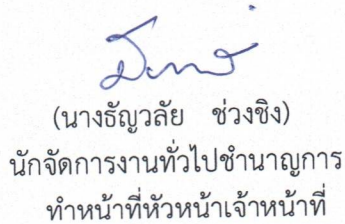 (นางธัญวลัย ช่วงชิง)
นักจัดการงานทั่วไปชำนาญการ
ทำหน้าที่หัวหน้าเจ้าหน้าที่